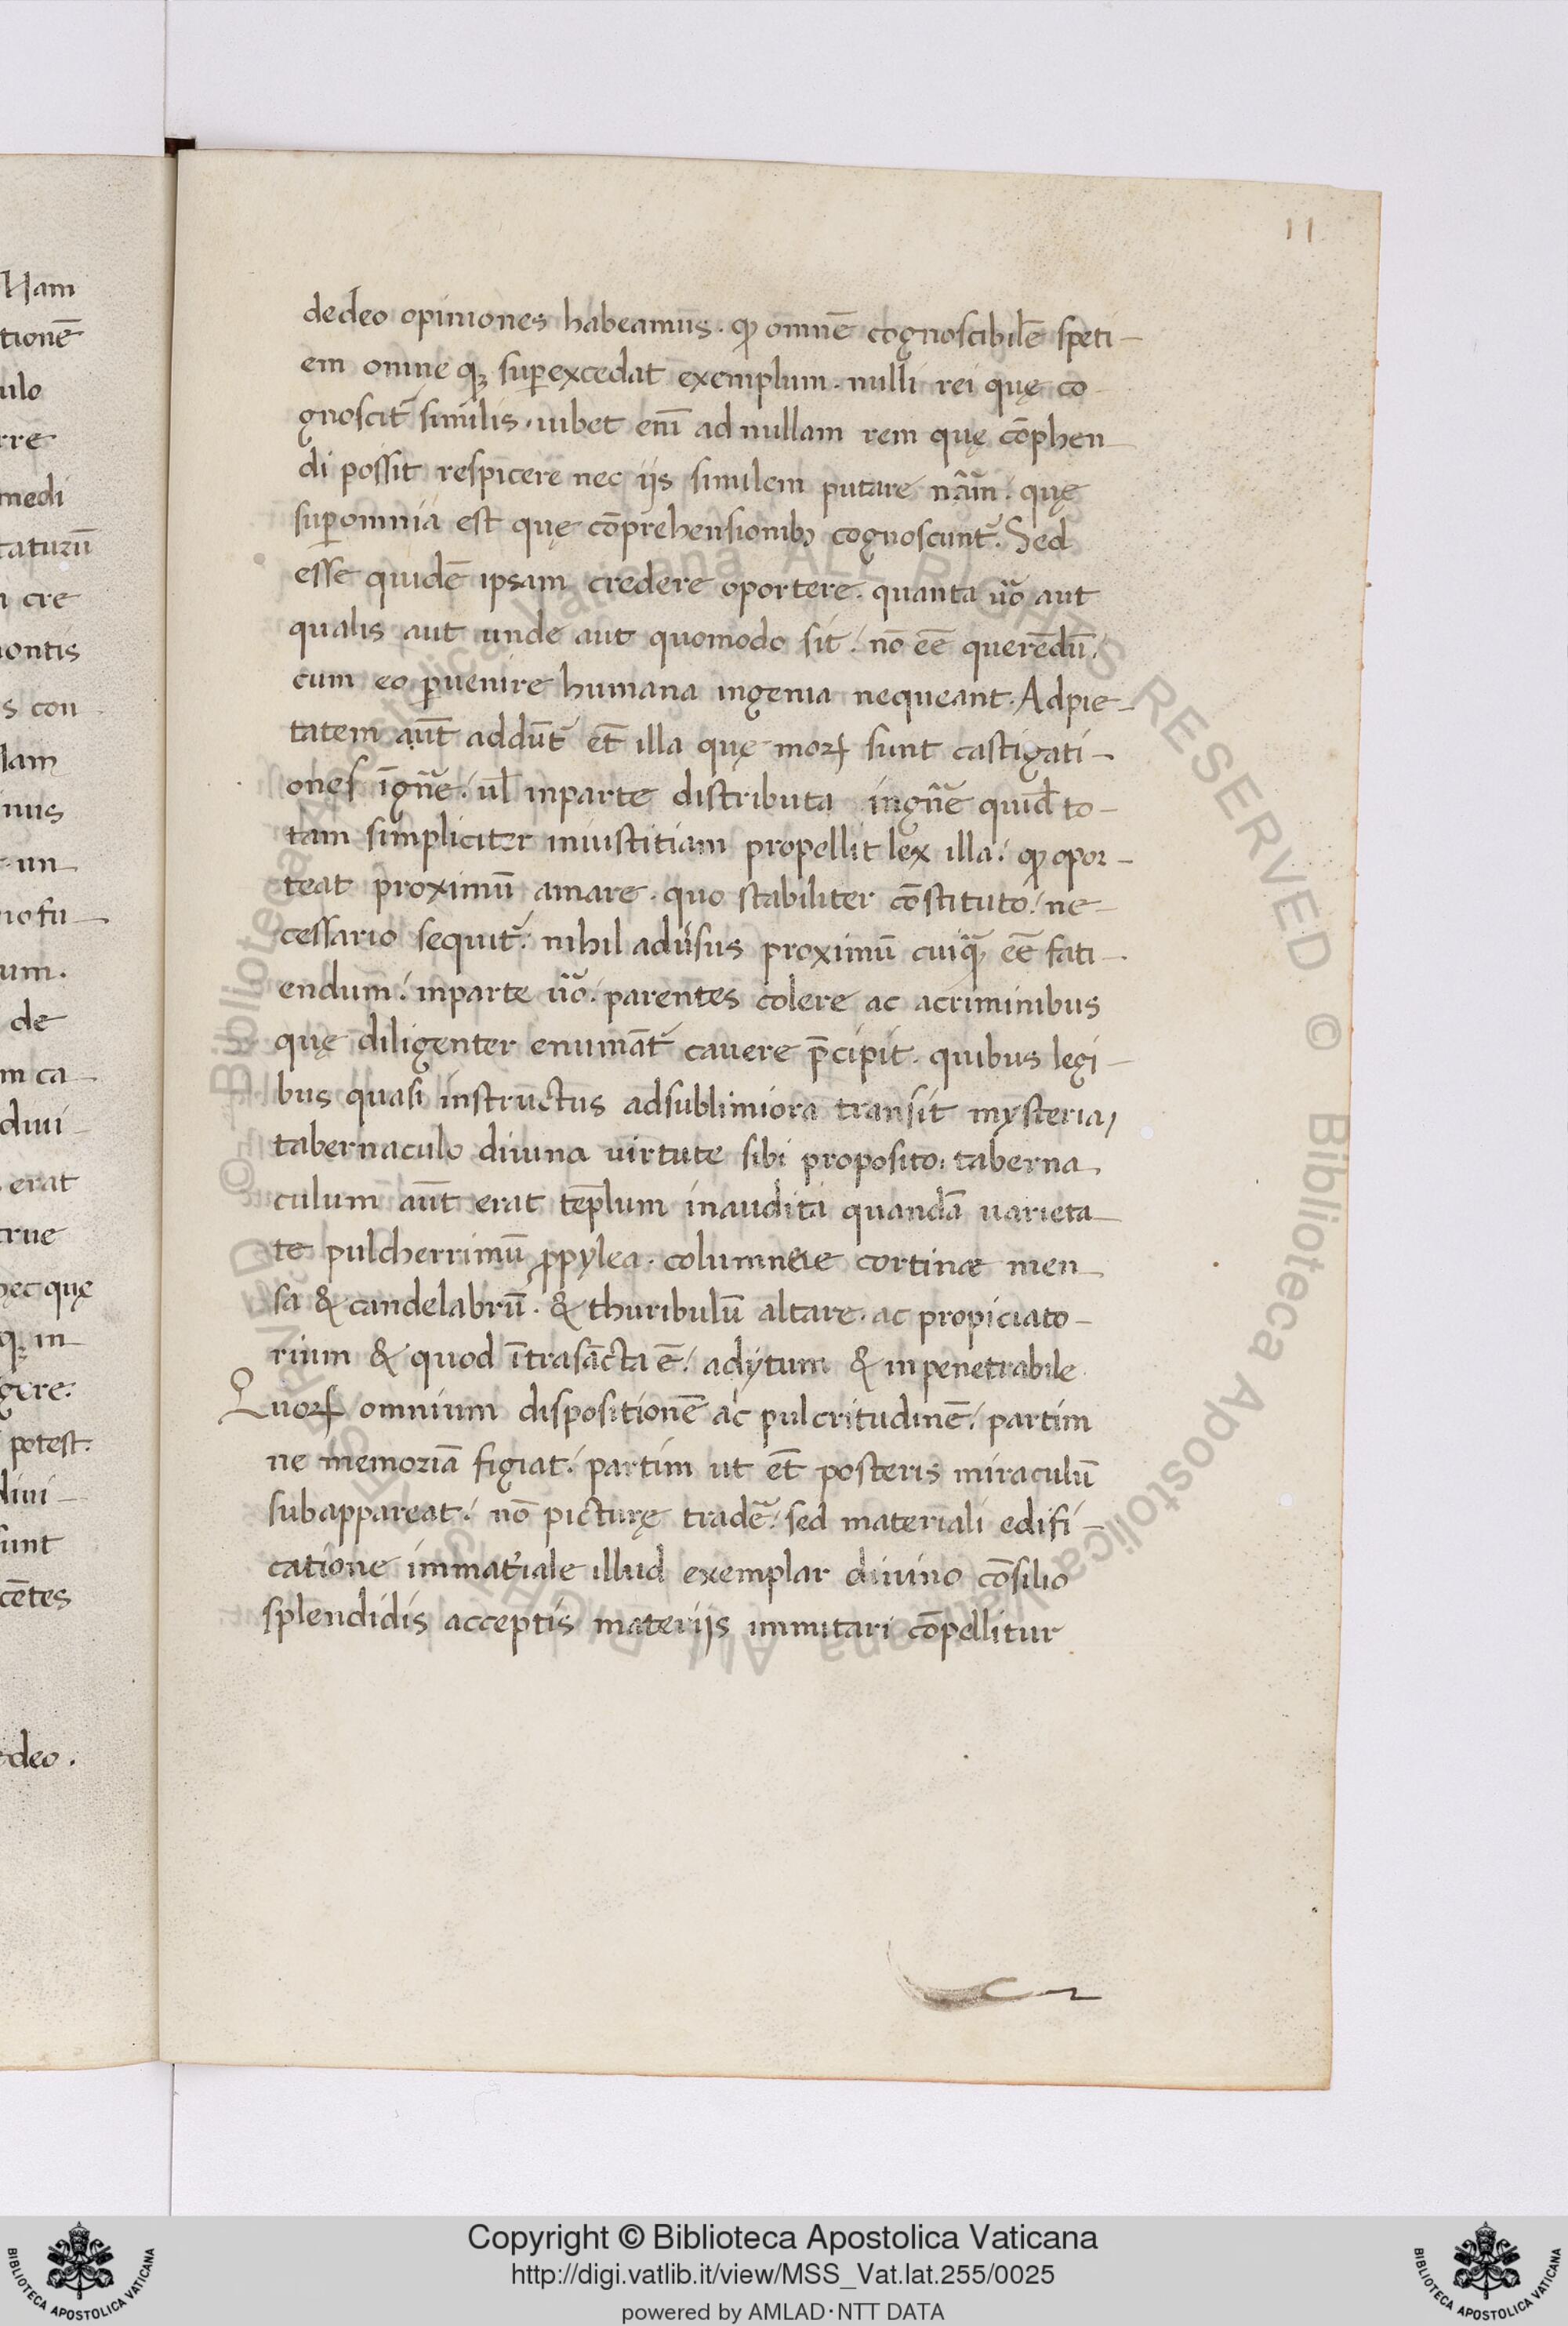 11
Nam
tionē
ulo
rre
medi
taturū
n cre
ontis
s con
lam
nus
un-
no fu-
um.
de
m ca-
diui-
erat
true
hęc quę
q; in-
gere.
potest.
diui-
sunt
cētes
deo.
dedeo opiniones habeamus. qđ omnē cognoscibilē speti-
em omne q; suꝑexcedat exemplum. nulli rei quę co-
gnoscit᷑ similis. iubet enī ad nullam rem quę cōphen-
di possit respicere nec ijs similem putare nâ̄m. quę
suꝑomnia est quę cōprehensionib; cognoscunt᷑. Sed
esse quidē ipsam credere oportere. quanta ūo aut
qualis aut unde aut quomodo sit. nō eē querēdū.
cum eo ꝑuenire humana ingenia nequeant. Adpie-
tatem aūt addūt᷑ et̄ illa quę moꝝ sunt castigati-
ones īgn̄e. ul̄ inparte distributa ingn̄e quid̄ to-
tam simpliciter iniustitiam propellit lex illa. qđ opor-
teat proximū amare. quo stabiliter cōstituto. ne-
cessario sequit᷑. nihil adūsus proximū cuiq̄ eē fati-
endum. inparte ūo. parentes colere ac acriminibus
quę diligenter enumāt᷑ cauere p̄cipit. quibus legi-
bus quasi instructus adsublimiora transit mysteria,
tabernaculo diuina uirtute sibi proposito. taberna-
culum aūt erat tēplum inaudita quandā uarieta-
te pulcherrimū ꝓpylea. columnæ cortinæ men-
sa & candelabrū. & thuribulū altare. ac propiciato-
rium & quod ītrasācta ē. adytum & inpenetrabile.
Quoꝝ omnium dispositionē ac pulcritudinē. partim
ne memoriā figiat. partim ut et̄ posteris miraculū
subappareat. nō picturę tradē᷑. sed materiali edifi-
catione immat̄iale illud exemplar diuino cōsilio
splendidis acceptis materijs immitari cōpellitur
Copyright © Biblioteca Apostolica Vaticana
http://digi.vatlib.it/view/MSS_Vat.lat.255/0025
powered by AMLAD·NTT DATA
BIBLIOTECA APOSTOLICA VATICANA
BIBLIOTECA APOSTOLICA VATICANA